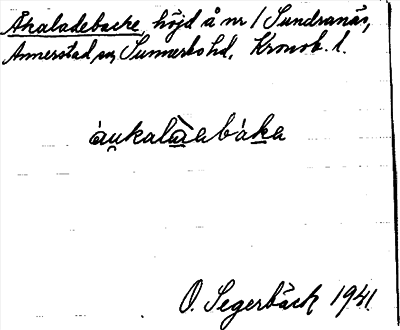 Åkaladebacke, höjd å nr 1 Sundranäs,
Annerstad sn, Sunnerbo hd, Kronob. l.
áu̯kalàabákа
O. Segerbäck 1941